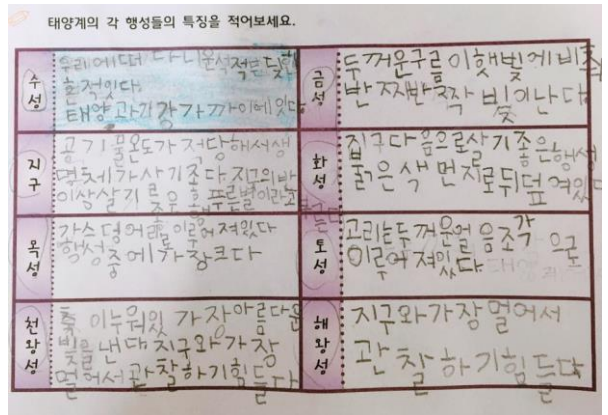 태양계의 각 행성들의 특징을 적어보세요.
수성
우리에떠 다니운석적은 닻
흔적있다
태양과기강가까이에있다
금성
두꺼운구름이햇빛에비춰
반짜반짝 빛이난다
지구
공기 물온도가 적당해서생
명체가사기좋다 지구의반
이상살기 푸른별이라고
화성
집구다음으로살기좋은행성
붉은색 먼지로뒤덮여있다
옥성
가스덩어리로이루어져있다
행성중에가장크다
토성
고리는두꺼운얼음조각으로
이루어져있다
천왕성
축이누워있 가장아름다운
빛을낸다 지구와가장
멀어서관찰하기힘들다
해왕성
지구와가장멀어서
관찰하기힘들다